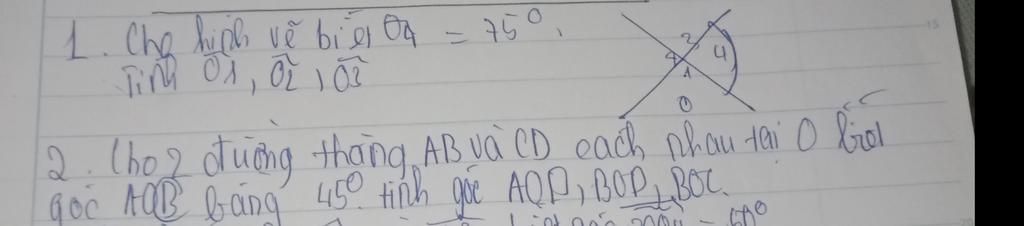 1. Cho hình vẽ biết O4 = 75°.
Tính O1, O2, O3
2 4
1
O
2. Cho 2 đường thẳng AB và CD cach nhau tại O biết
góc AOB bằng 45° tính góc AOD, BOD, BOC.
= 60°